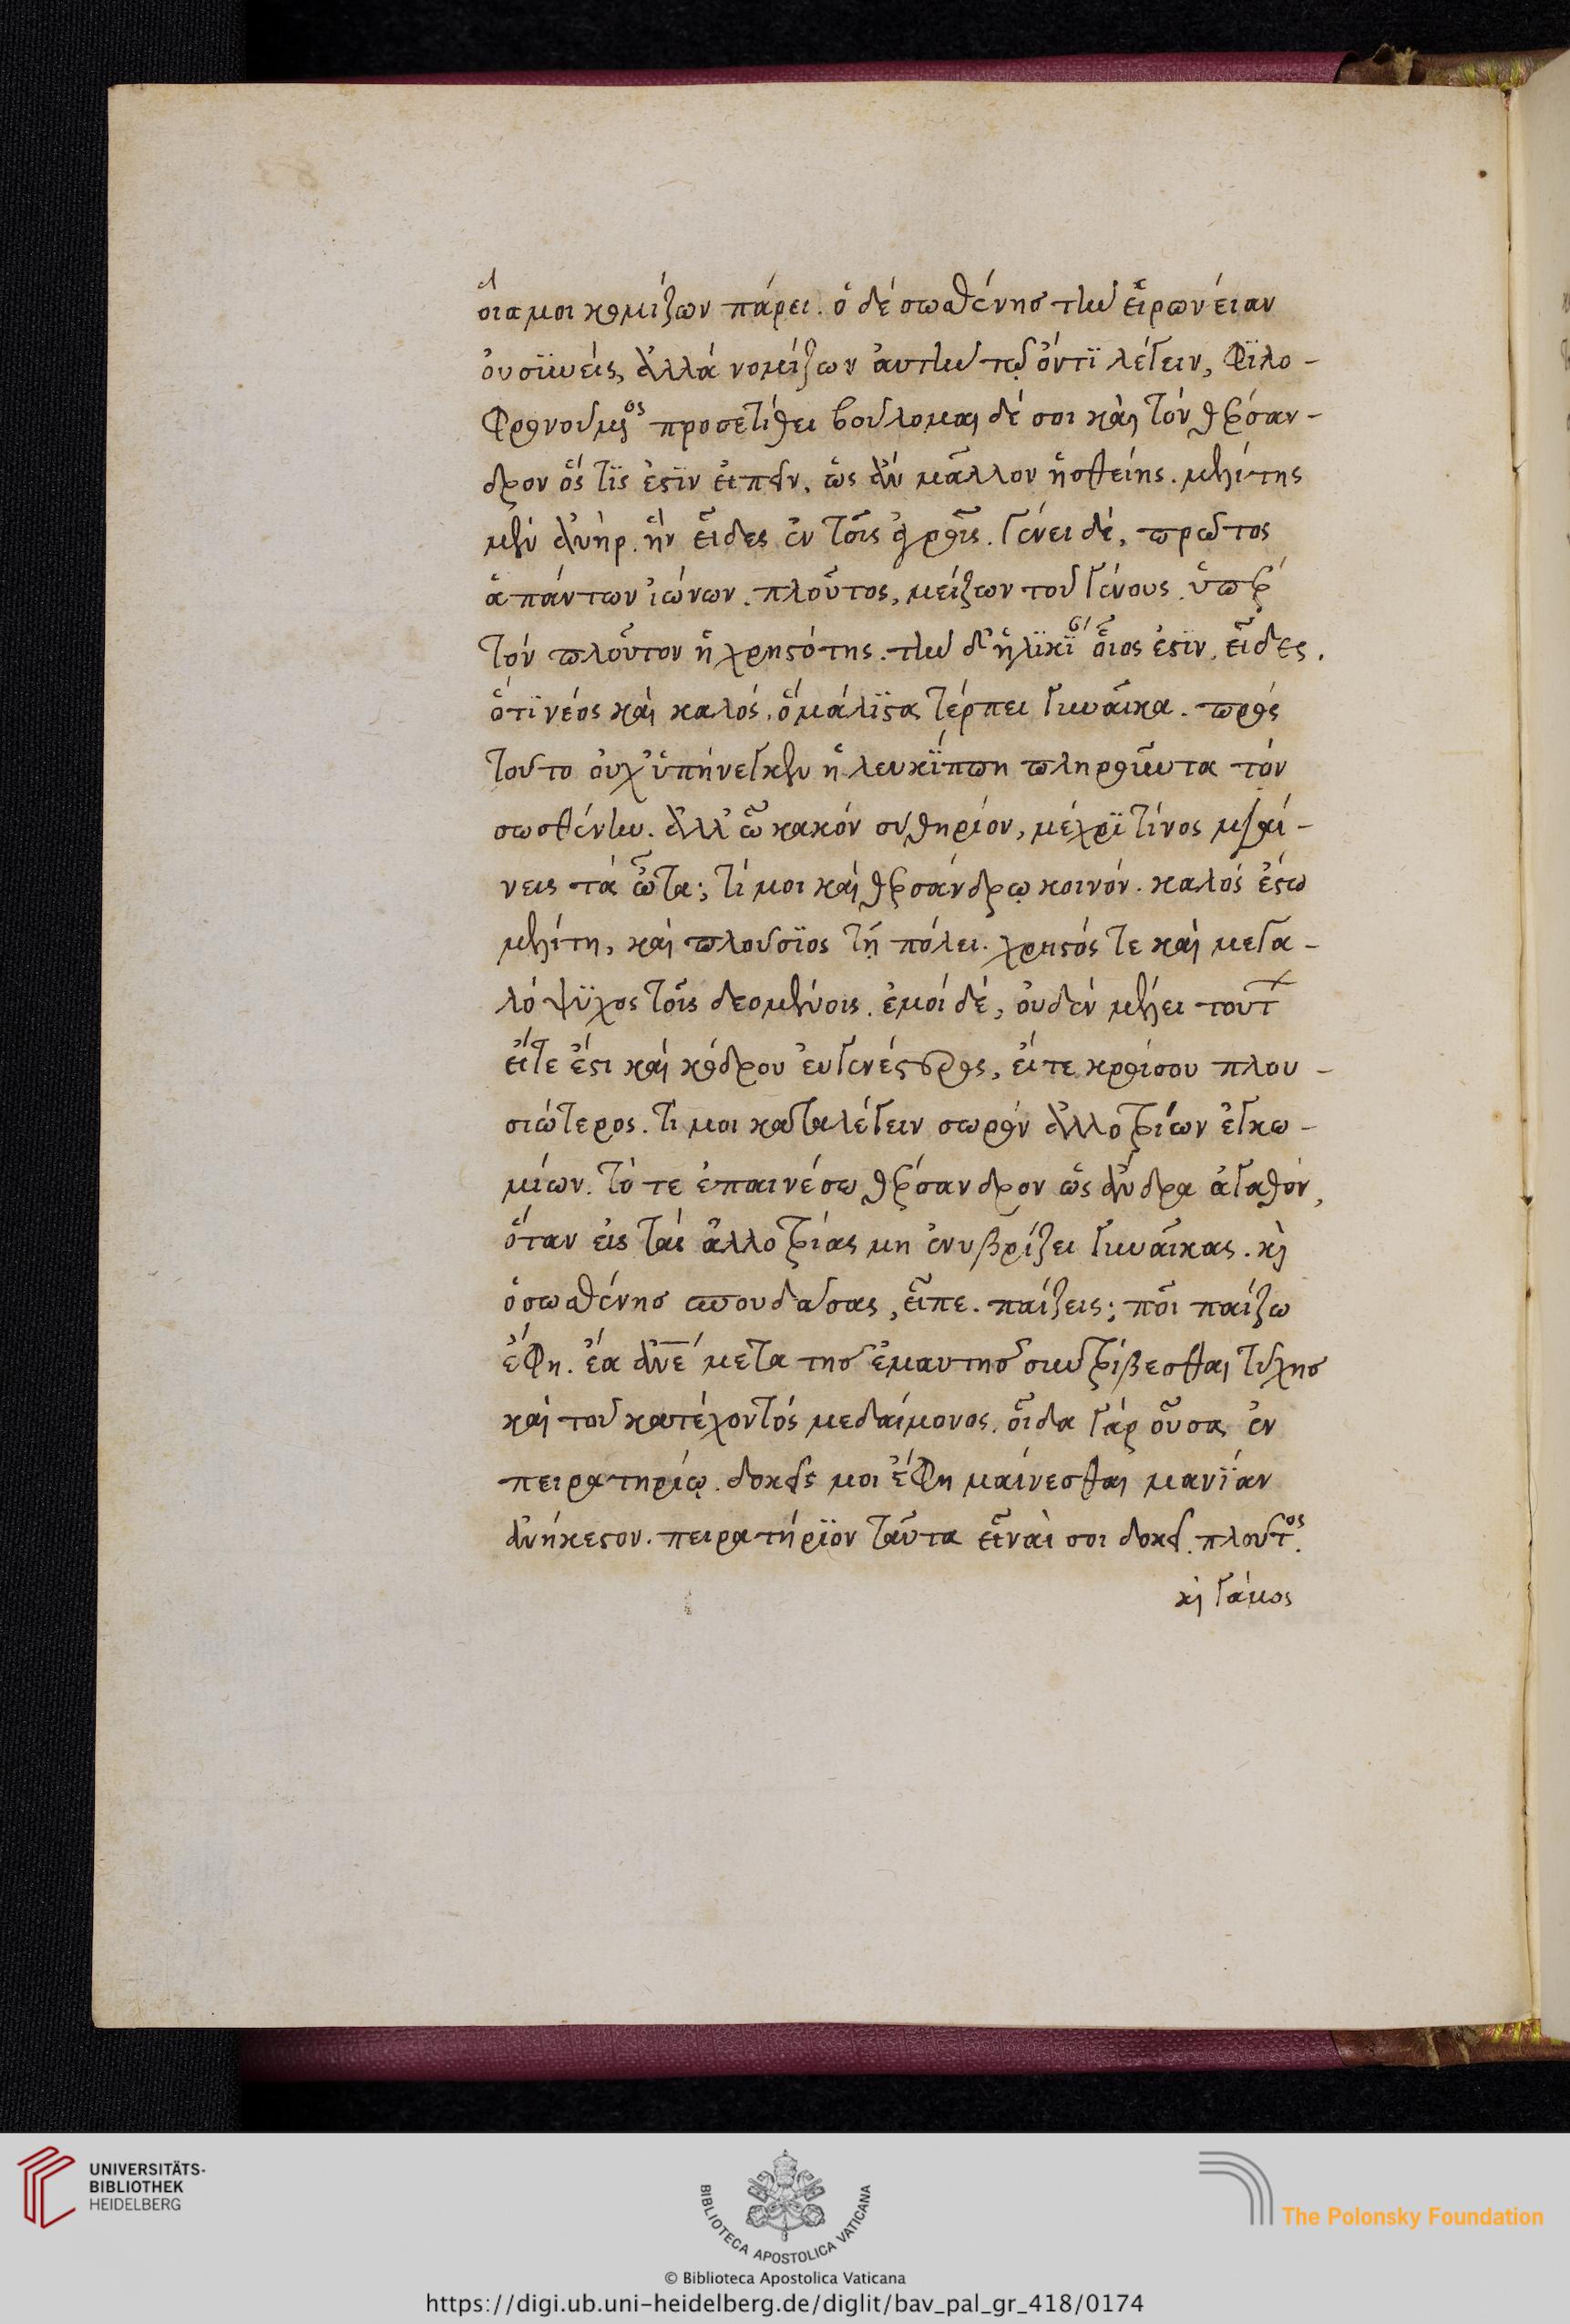 οἷά μοι κομίζων πάρει. ὁ δὲ σωσθένης τὴν εἰρωνείαν
οὐ συνεὶς, ἀλλὰ νομίζων αὐτὴν τῷ ὄντι λέγειν, φιλο-
φρονούμενος προσετίθει βούλομαι δέ σοι καὶ τὸν θέρσαν-
δρον ὅς τίς ἐστιν εἰπεῖν, ὡς ἂν μᾶλλον ἡσθείης. μελίτης
μὲν ἀνήρ. ἣν εἶδες ἐν τοῖς ἀγροῖς. γένει δὲ, πρῶτος
ἁπάντων ἰώνων. πλοῦτος, μείζων τοῦ γένους. ὑπὲρ
τὸν πλοῦτον ἡ χρηστότης. τὴν δ' ἡλικίαν οἷος ἐστὶν, εἶδες.
ὅτι νέος καὶ καλὸς. ὃ μάλιστα τέρπει γυναῖκα. πρὸς
τοῦτο οὐχ ὑπήνεγκεν ἡ λευκίππη ληροῦντα τὸν
σωσθένην. ἀλλ' ὦ κακὸν σὺ θηρίον, μέχρι τίνος μιαί-
νεις τὰ ὦτα; τί μοι καὶ θερσάνδρῳ κοινόν. καλὸς ἔστω
μελίτῃ, καὶ πλούσιος τῇ πόλει. χρηστός τε καὶ μεγα-
λόψυχος τοῖς δεομένοις. ἐμοὶ δὲ, οὐδὲν μέλει τούτων
εἴτε ἔστι καὶ κόδρου εὐγενέστερος, εἴτε κροίσου πλου-
σιώτερος. τί μοι καταλέγειν σωρὸν ἀλλοτρίων ἐγκω-
μίων. τότε ἐπαινέσω θέρσανδρον ὡς ἄνδρα ἀγαθόν,
ὅταν εἰς τὰς ἀλλοτρίας μη ἐνυβρίζει γυναῖκας. καὶ
ὁ σωσθένης σπουδάσας, εἶπε. παίζεις; ποῖ παίζω
ἔφη. ἔα ἄνε μετὰ τῆς ἐμαυτῆς συντρίβεσθαι τύχης
καὶ τοῦ κατέχοντός με δαίμονος. οἶδα γὰρ οὖσα ἐν
πειρατηρίῳ. δοκεῖς μοι ἔφη μαίνεσθαι μανίαν
ἀνήκεστον. πειρατήριον ταῦτα εἶναί σοι δοκεῖ. πλοῦτος.
καὶ γάμος
UNIVERSITÄTS-
BIBLIOTHEK
HEIDELBERG
BIBLIOTECA APOSTOLICA VATICANA
The Polonsky Foundation
© Biblioteca Apostolica Vaticana
https://digi.ub.uni-heidelberg.de/diglit/bav_pal_gr_418/0174